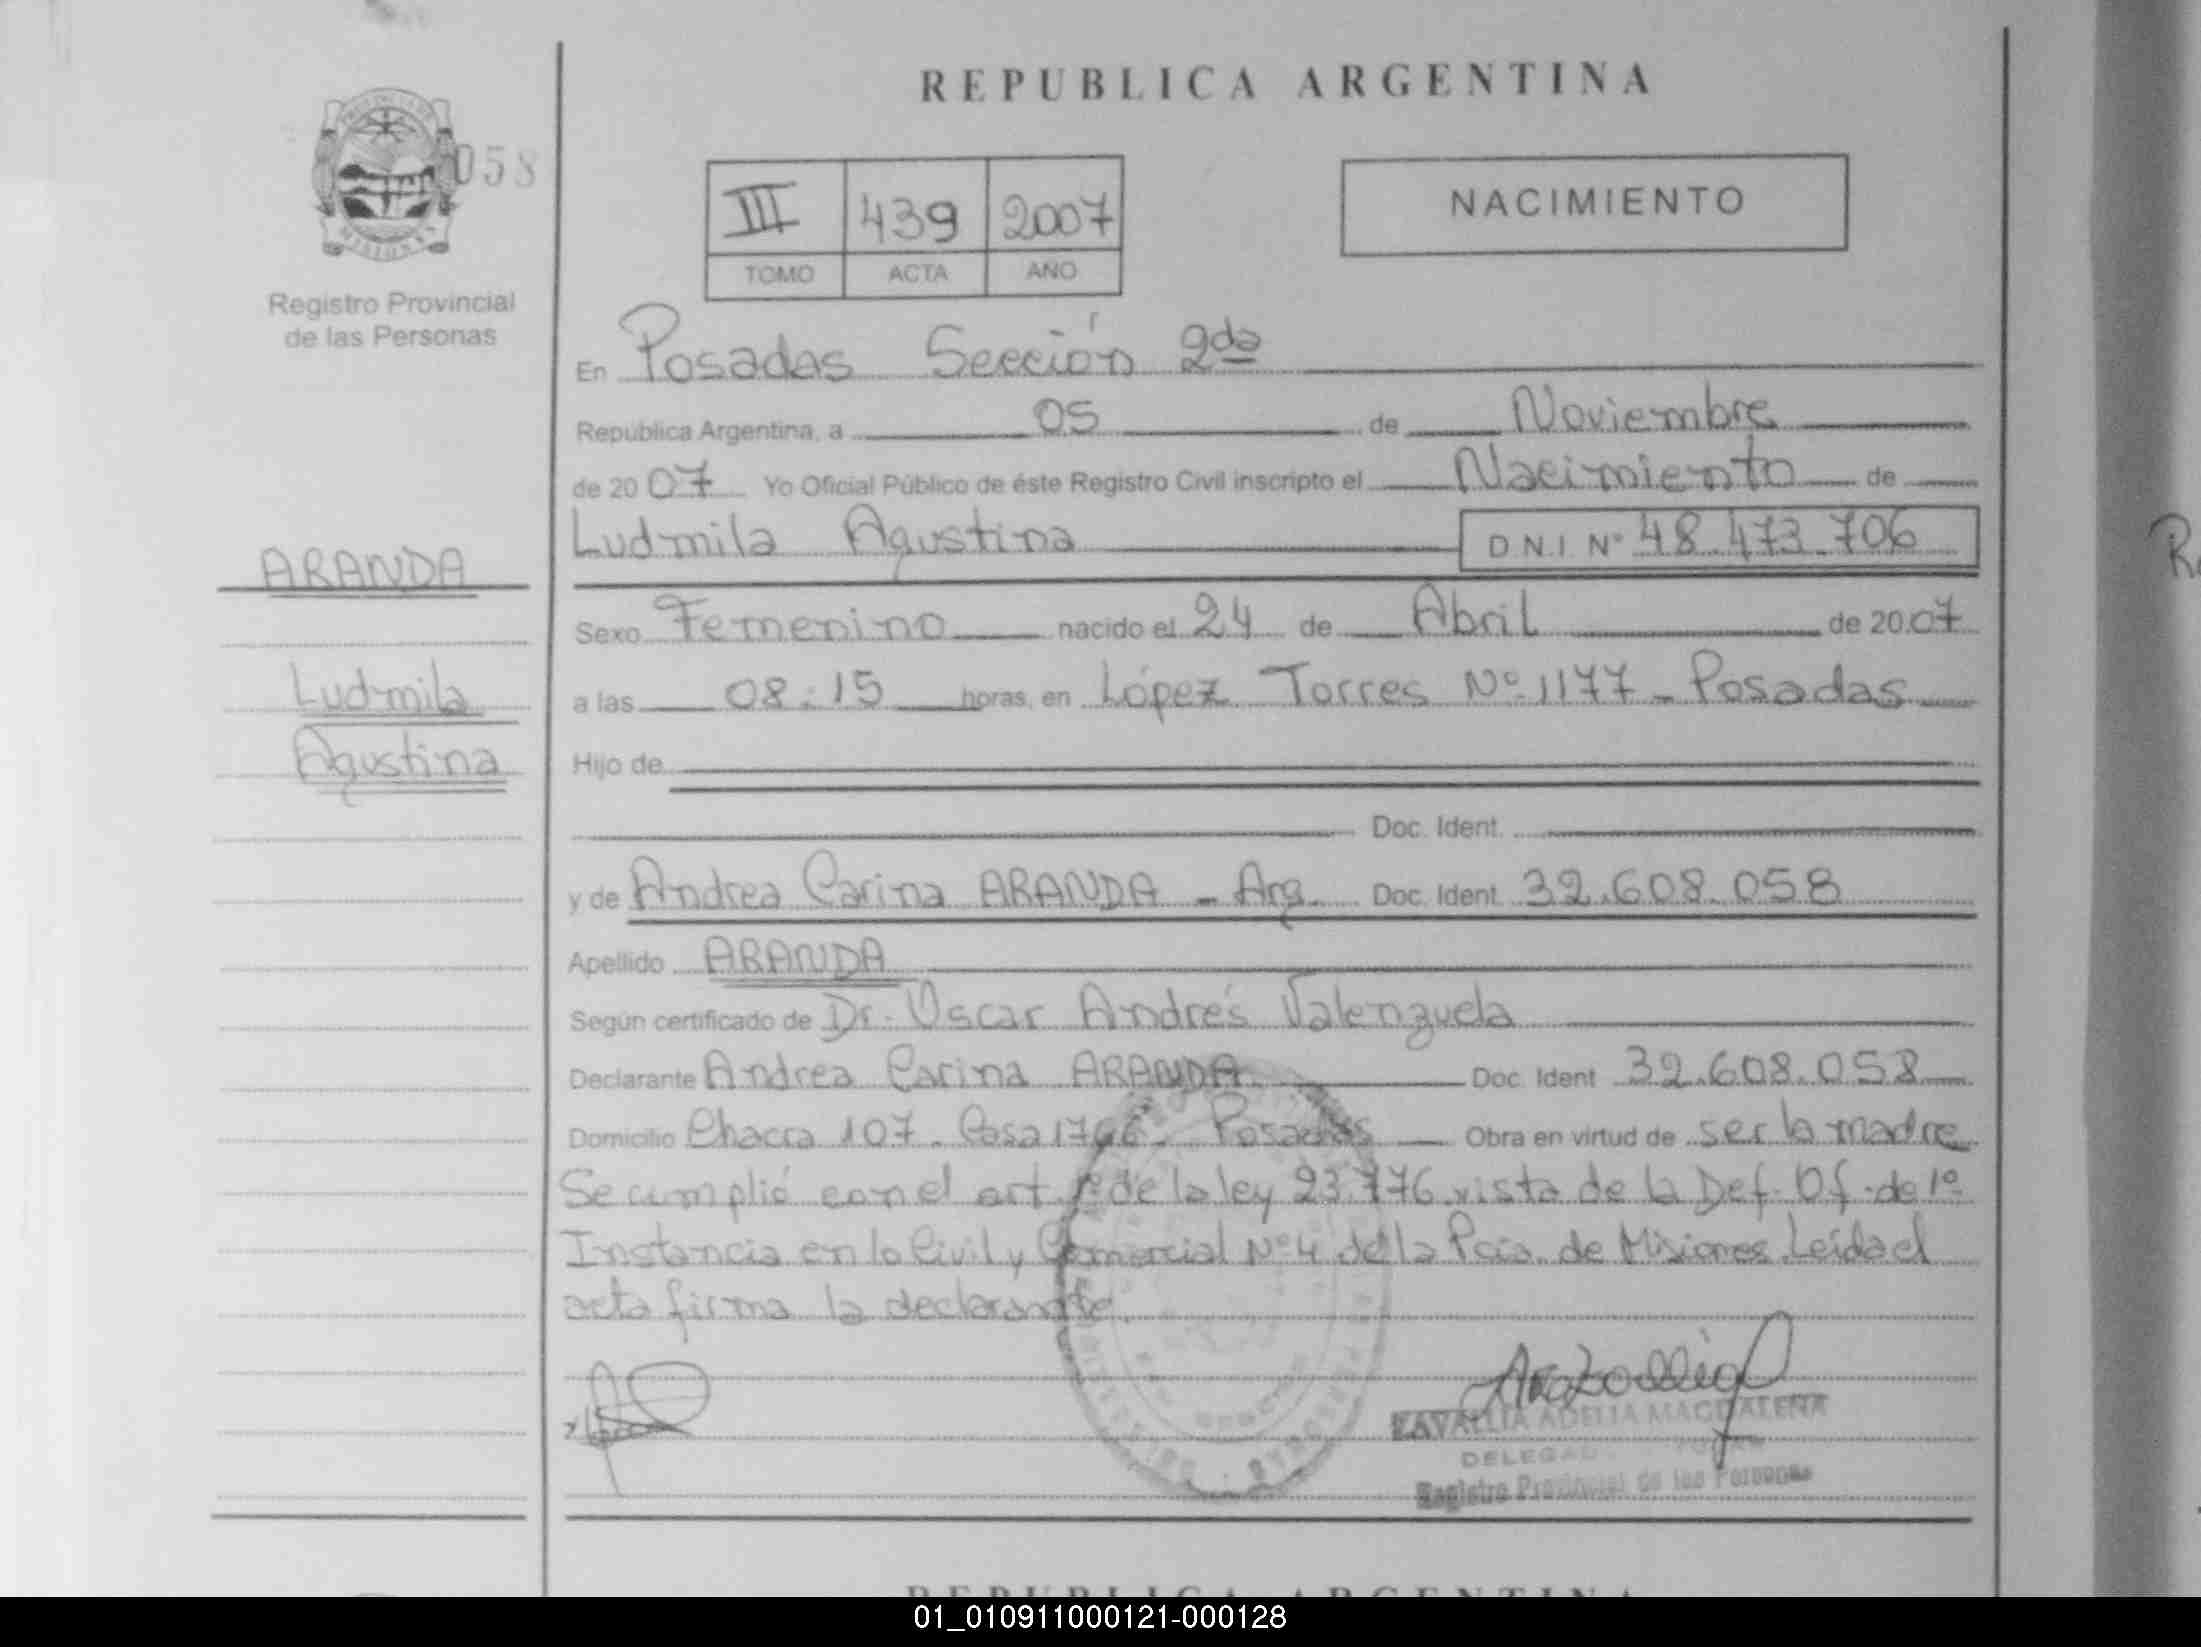 REPUBLICA ARGENTINA
058
III 439 2007
TOMO ACTA AÑO
NACIMIENTO
Registro Provincial
de las Personas
En Posadas Sección 2da
República Argentina, a 05 de Noviembre
de 2007 Yo Oficial Público de éste Registro Civil inscripto el Nacimiento de
Ludmila Agustina D.N.I. Nº 48.473.706
ARANDA
Sexo Femenino nacido el 24 de Abril de 2007
Ludmila
a las 08:15 horas, en López Torres Nº 1177 - Posadas
Agustina
Hijo de
Doc. Ident.
y de Andrea Carina ARANDA - Arg. Doc. Ident. 32.608.058
Apellido ARANDA
Según certificado de Dr. Oscar Andrés Valenzuela
Declarante Andrea Carina ARANDA Doc. Ident 32.608.058
Domicilio Chacra 107. Casa Posadas Obra en virtud de ser la madre
Se cumplió con el art. 1º de la ley 23.776 vista de la Def. Of. de 1º
Instancia en lo Civil y Comercial Nº 4 de la Pcia. de Misiones. Leída el
acta firma la declarante.
ADELIA MAGDALENA
Registro Provincial de las Personas
REPUBLICA ARGENTINA
01_010911000121-000128